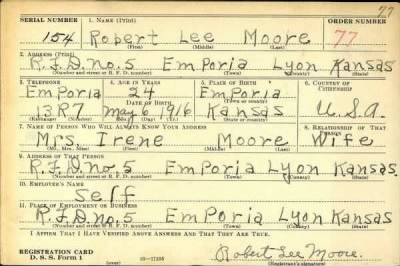 77
SERIAL NUMBER 1. NAME (Print) ORDER NUMBER
154 Robert Lee Moore 77
(First) (Middle) (Last)
2. ADDRESS (Print)
R.F.D. no. 5 Emporia Lyon Kansas
(Number and street or R. F. D. number) (Town) (County) (State)
3. TELEPHONE 4. AGE IN YEARS 5. PLACE OF BIRTH 6. COUNTRY OF CITIZENSHIP
Emporia 24 Emporia
DATE OF BIRTH (Town or county)
13R7 may 6, 1916 Kansas U.S.A.
(Exchange) (Number) (Mo.) (Day) (Yr.) (State or country)
7. NAME OF PERSON WHO WILL ALWAYS KNOW YOUR ADDRESS 8. RELATIONSHIP OF THAT PERSON
Mrs. Irene Moore Wife
(Mr., Mrs., Miss) (First) (Middle) (Last)
9. ADDRESS OF THAT PERSON
R.F.D. no. 5 Emporia Lyon Kansas.
(Number and street or R. F. D. number) (Town) (County) (State)
10. EMPLOYER'S NAME
Self
11. PLACE OF EMPLOYMENT OR BUSINESS
R.F.D. no. 5 Emporia Lyon Kansas
(Number and street or R. F. D. number) (Town) (County) (State)
I AFFIRM THAT I HAVE VERIFIED ABOVE ANSWERS AND THAT THEY ARE TRUE.
REGISTRATION CARD
D. S. S. Form 1 Robert Lee Moore.
(Registrant's signature)